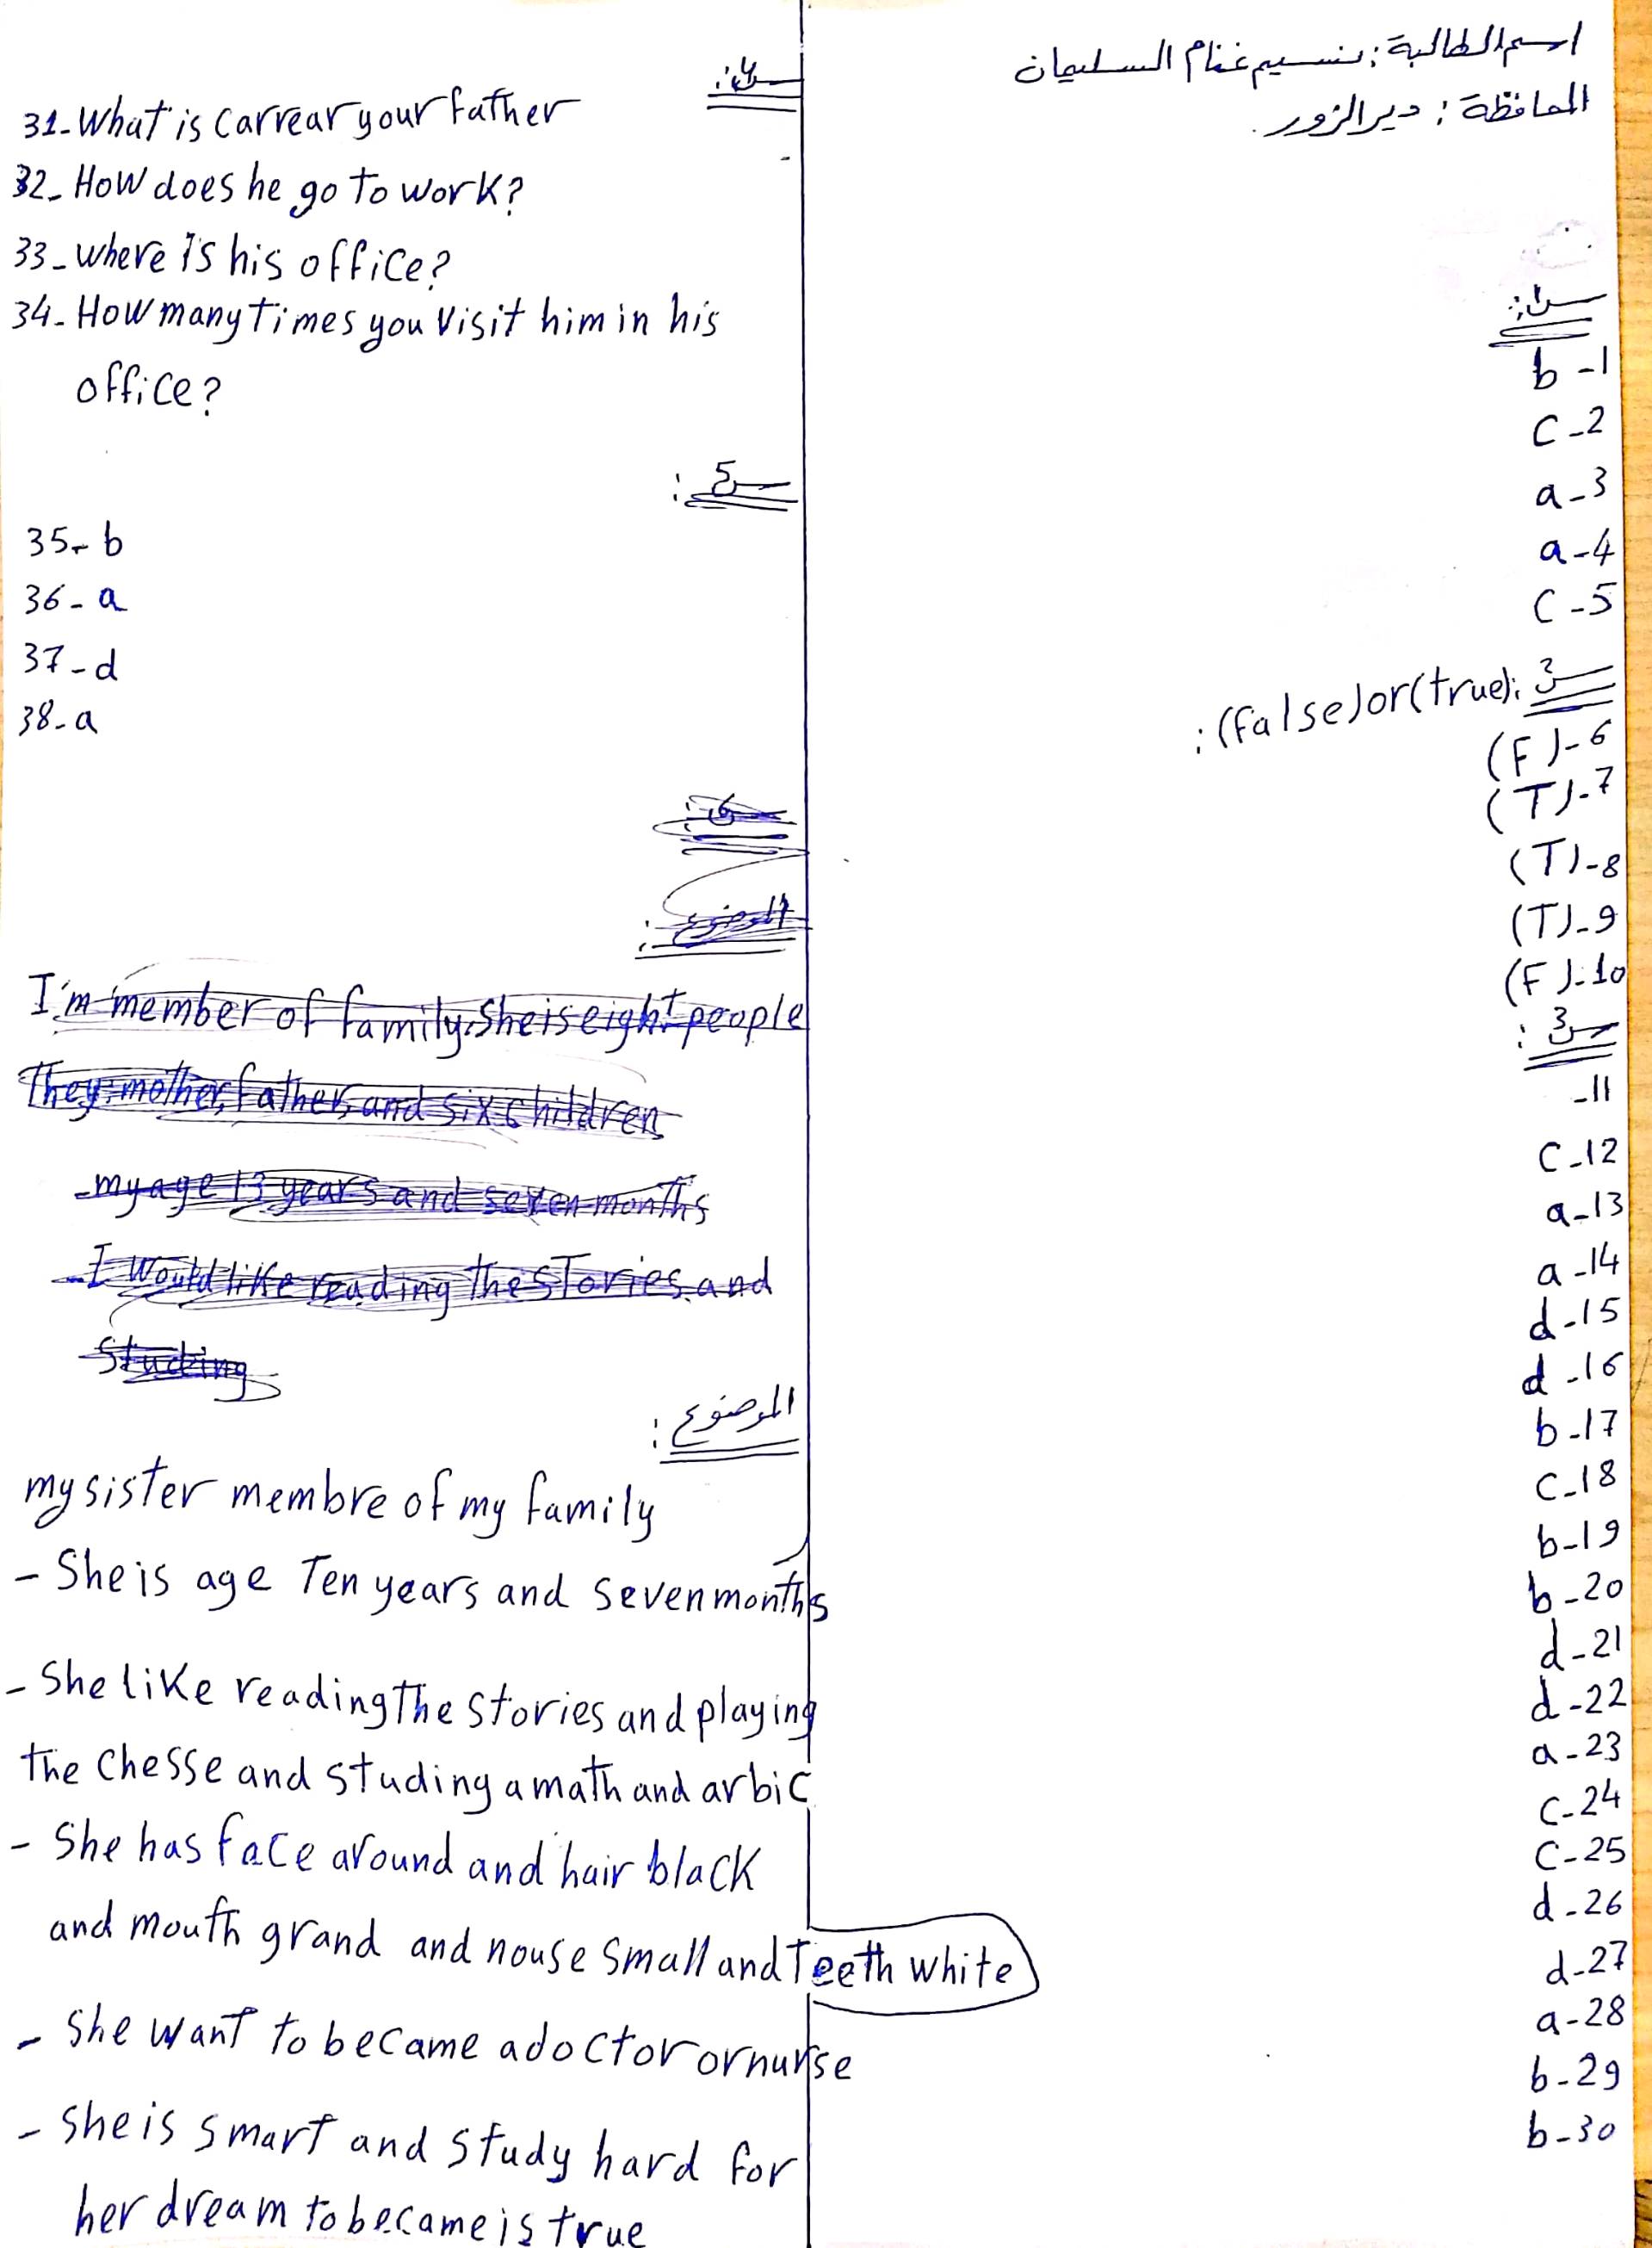 اسم الطالبة: نسيم غنام السليمان
المحافظة: دير الزور.
س1:
b -1
c -2
a -3
a -4
c -5
س2: (false) or (true):
(F) -6
(T) -7
(T) -8
(T) -9
(F) -10
س3:
-11
c -12
a -13
a -14
d -15
d -16
b -17
c -18
b -19
b -20
d -21
d -22
a -23
c -24
c -25
d -26
d -27
a -28
b -29
b -30
س4:
31- What is carrear your father
32- How does he go to work?
33- where is his office?
34- How many times you visit him in his
office?
س5:
35- b
36- a
37- d
38- a
س6:
الموضوع:
I'm member of family. She is eight people
They: mother, father, and six children
- my age 13 years and seven months
- I would like reading the stories and
studing
الموضوع:
my sister membre of my family
- She is age Ten years and seven months
- She like reading the stories and playing
the chesse and studing a math and arbic
- She has face around and hair black
and mouth grand and nouse small and Teeth white
- She want to became a doctor or nurse
- She is smart and study hard for
her dream to became is true